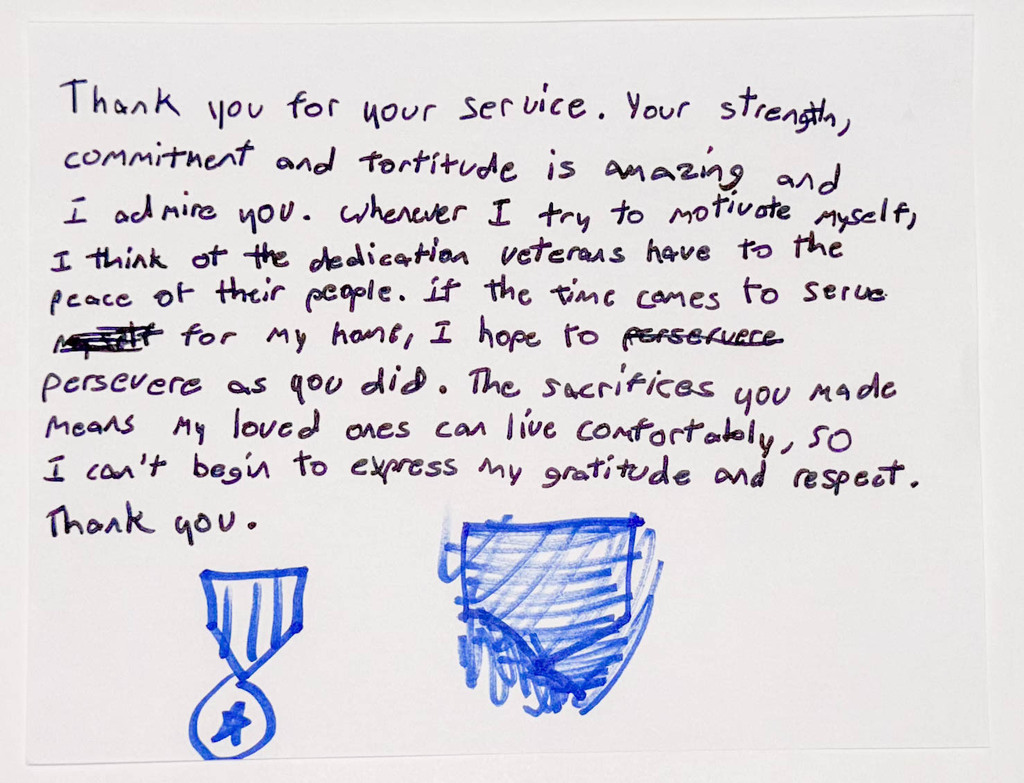 Thank you for your service. Your strength,
commitment and fortitude is amazing and
I admire you. Whenever I try to motivate myself,
I think of the dedication veterans have to the
peace of their people. if the time comes to serve
myself for my home, I hope to perservere
persevere as you did. The sacrifices you made
means my loved ones can live comfortably, so
I can't begin to express my gratitude and respect.
Thank you.